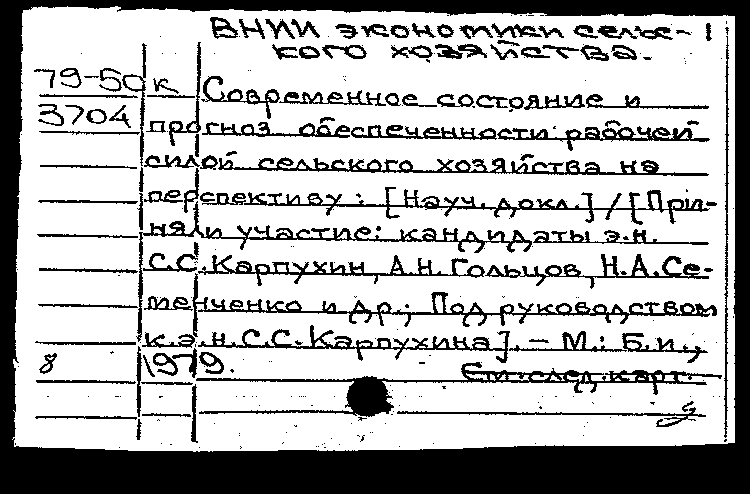 ВНИИ экономики сельс- 1
кого хозяйства.
79-50к Современное состояние и
3704 прогноз обеспеченности рабочей
силой сельского хозяйства на
перспективу : [Науч. докл.] / [При-
няли участие: кандидаты э.н.
С.С. Карпухин, А.Н. Гольцов, Н.А. Се-
менченко и др.; Под руководством
к.э.н. С.С. Карпухина]. – М.: Б.и.,
8 1979. См. след. карт.